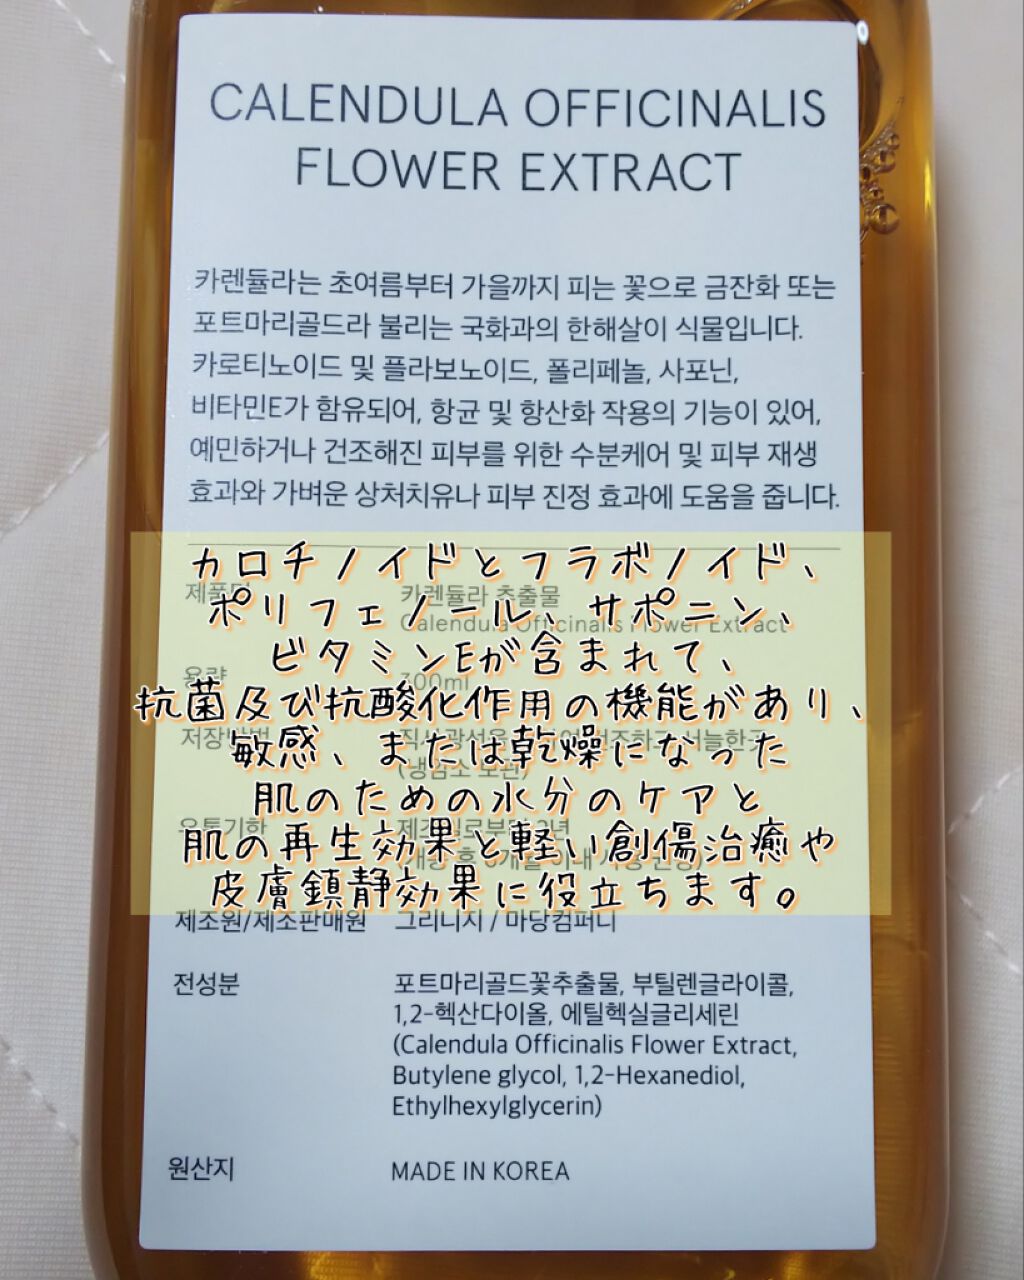 CALENDULA OFFICINALIS
FLOWER EXTRACT
카렌듈라는 초여름부터 가을까지 피는 꽃으로 금잔화 또는
포트마리골드라 불리는 국화과의 한해살이 식물입니다.
카로티노이드 및 플라보노이드, 폴리페놀, 사포닌,
비타민E가 함유되어, 항균 및 항산화 작용의 기능이 있어,
예민하거나 건조해진 피부를 위한 수분케어 및 피부 재생
효과와 가벼운 상처치유나 피부 진정 효과에 도움을 줍니다.
カロチノイドとフラボノイド、
카렌듈라 추출물
ポリフェノール、サポニン、
Calendula Officinalis Flower Extract
ビタミンEが含まれて、
용량 300ml
抗菌及び抗酸化作用の機能があり、
敏感、または乾燥になった
肌のための水分のケアと
유통기한
肌の再生効果と軽い創傷治癒や
皮膚鎮静効果に役立ちます。
제조원/제조판매원 그리니지 / 마당컴퍼니
전성분 포트마리골드꽃추출물, 부틸렌글라이콜,
1,2-헥산다이올, 에틸헥실글리세린
(Calendula Officinalis Flower Extract,
Butylene glycol, 1,2-Hexanediol,
Ethylhexylglycerin)
원산지 MADE IN KOREA